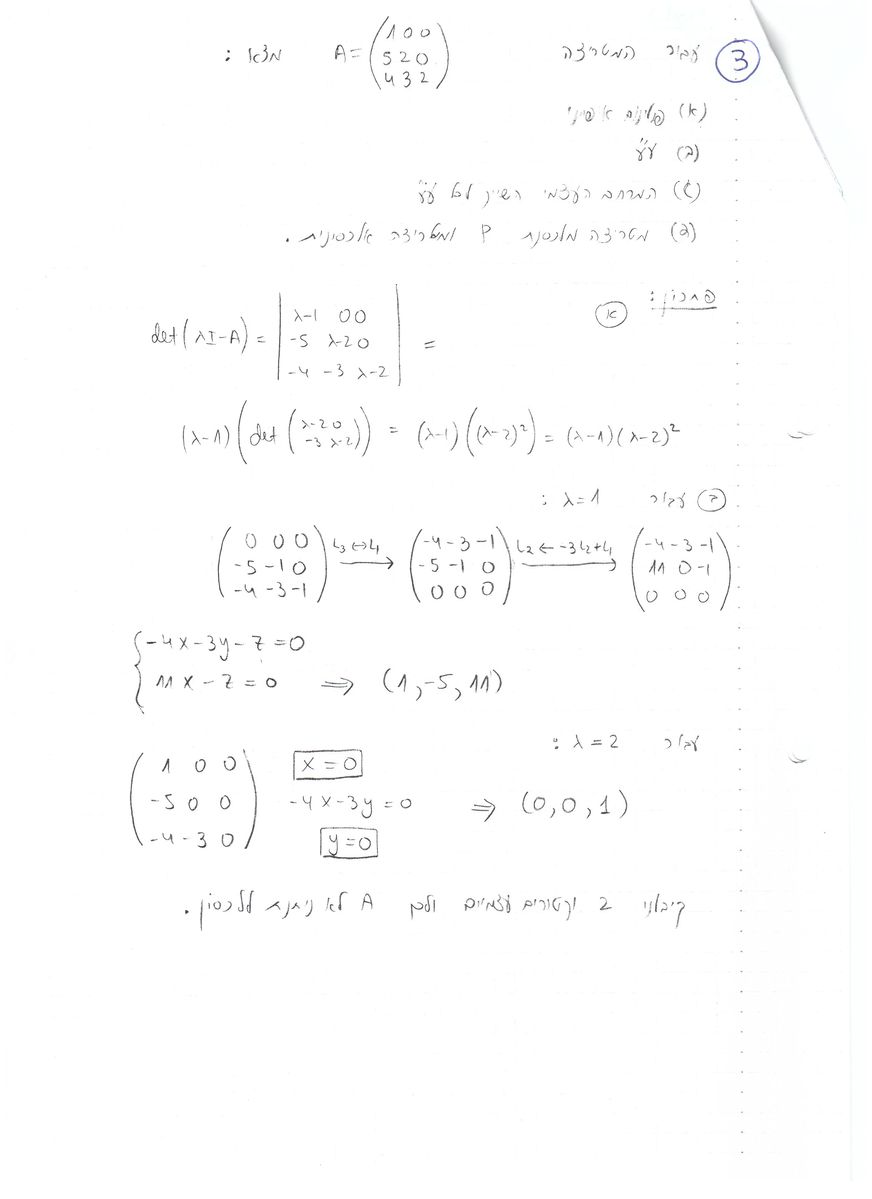 ③ עבור המטריצה A = (1 0 0 / 5 2 0 / 4 3 2) מצא :
(א) פולינום אופייני
(ב) ע"ע
(ג) המרחב העצמי השייך לכל ע"ע
(ד) מטריצה מלכסנת P ומטריצה אלכסונית .
פתרון :
Ⓐא det(λI-A) = | λ-1 0 0 / -5 λ-2 0 / -4 -3 λ-2 | =
(λ-1)(det(λ-2 0 / -3 λ-2)) = (λ-1)((λ-2)²) = (λ-1)(λ-2)²
ב עבור λ=1 :
(0 0 0 / -5 -1 0 / -4 -3 -1) L₃↔L₁ → (-4 -3 -1 / -5 -1 0 / 0 0 0) L₂ ← -3L₂+L₁ → (-4 -3 -1 / 11 0 -1 / 0 0 0)
{ -4x-3y-z=0
11x-z=0 ⇒ (1,-5,11)
עבור λ=2 :
(1 0 0 / -5 0 0 / -4 -3 0) x=0
-4x-3y=0 ⇒ (0,0,1)
y=0
קיבלנו 2 וקטורים עצמיים ולכן A לא ניתנת ללכסון .